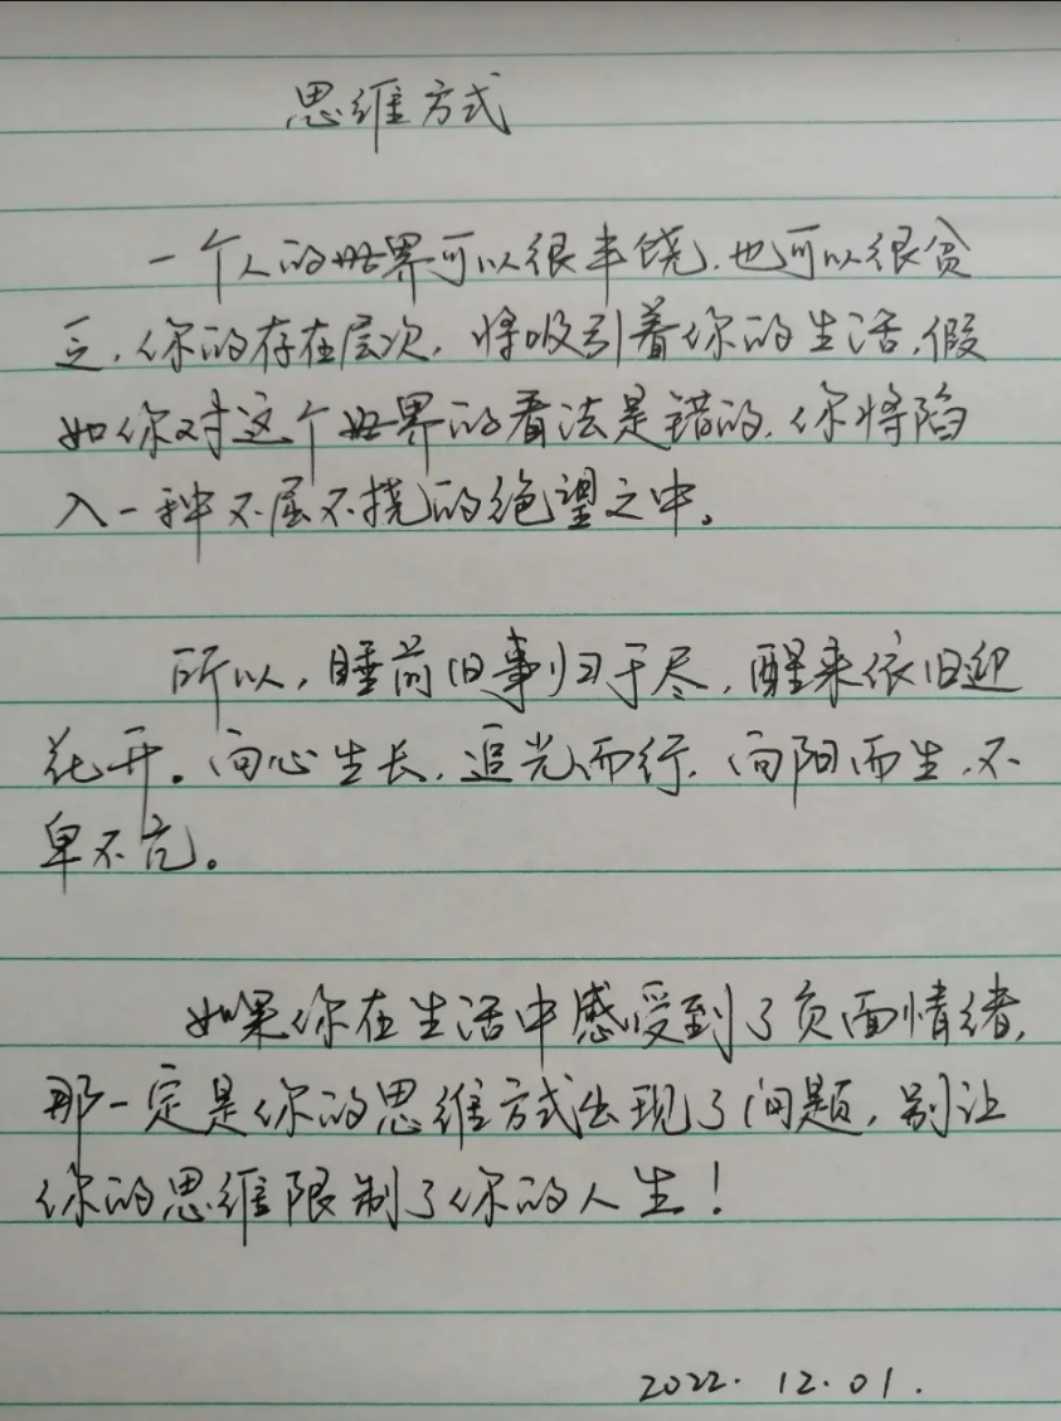 思维方式
一个人的世界可以很丰饶,也可以很贫
乏,你的存在层次,将吸引着你的生活,假
如你对这个世界的看法是错的,你将陷
入一种不屈不挠的绝望之中。
所以,睡前旧事归于尽,醒来依旧迎
花开。向心生长,追光而行,向阳而生,不
卑不亢。
如果你在生活中感受到了负面情绪,
那一定是你的思维方式出现了问题,别让
你的思维限制了你的人生!
2022.12.01.